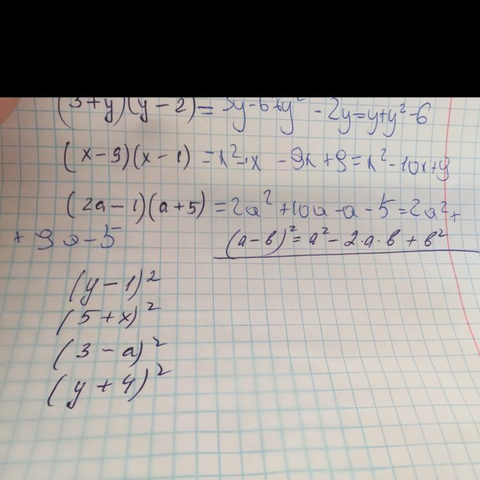 (3+y)(y-2)=3y-6+y²-2y=y+y²-6
(x-9)(x-1)=x²-x-9x+9=x²-10x+9
(2a-1)(a+5)=2a²+10a-a-5=2a²+
+9a-5
(a-b)²=a²-2·a·b+b²
(y-1)²
(5+x)²
(3-a)²
(y+4)²